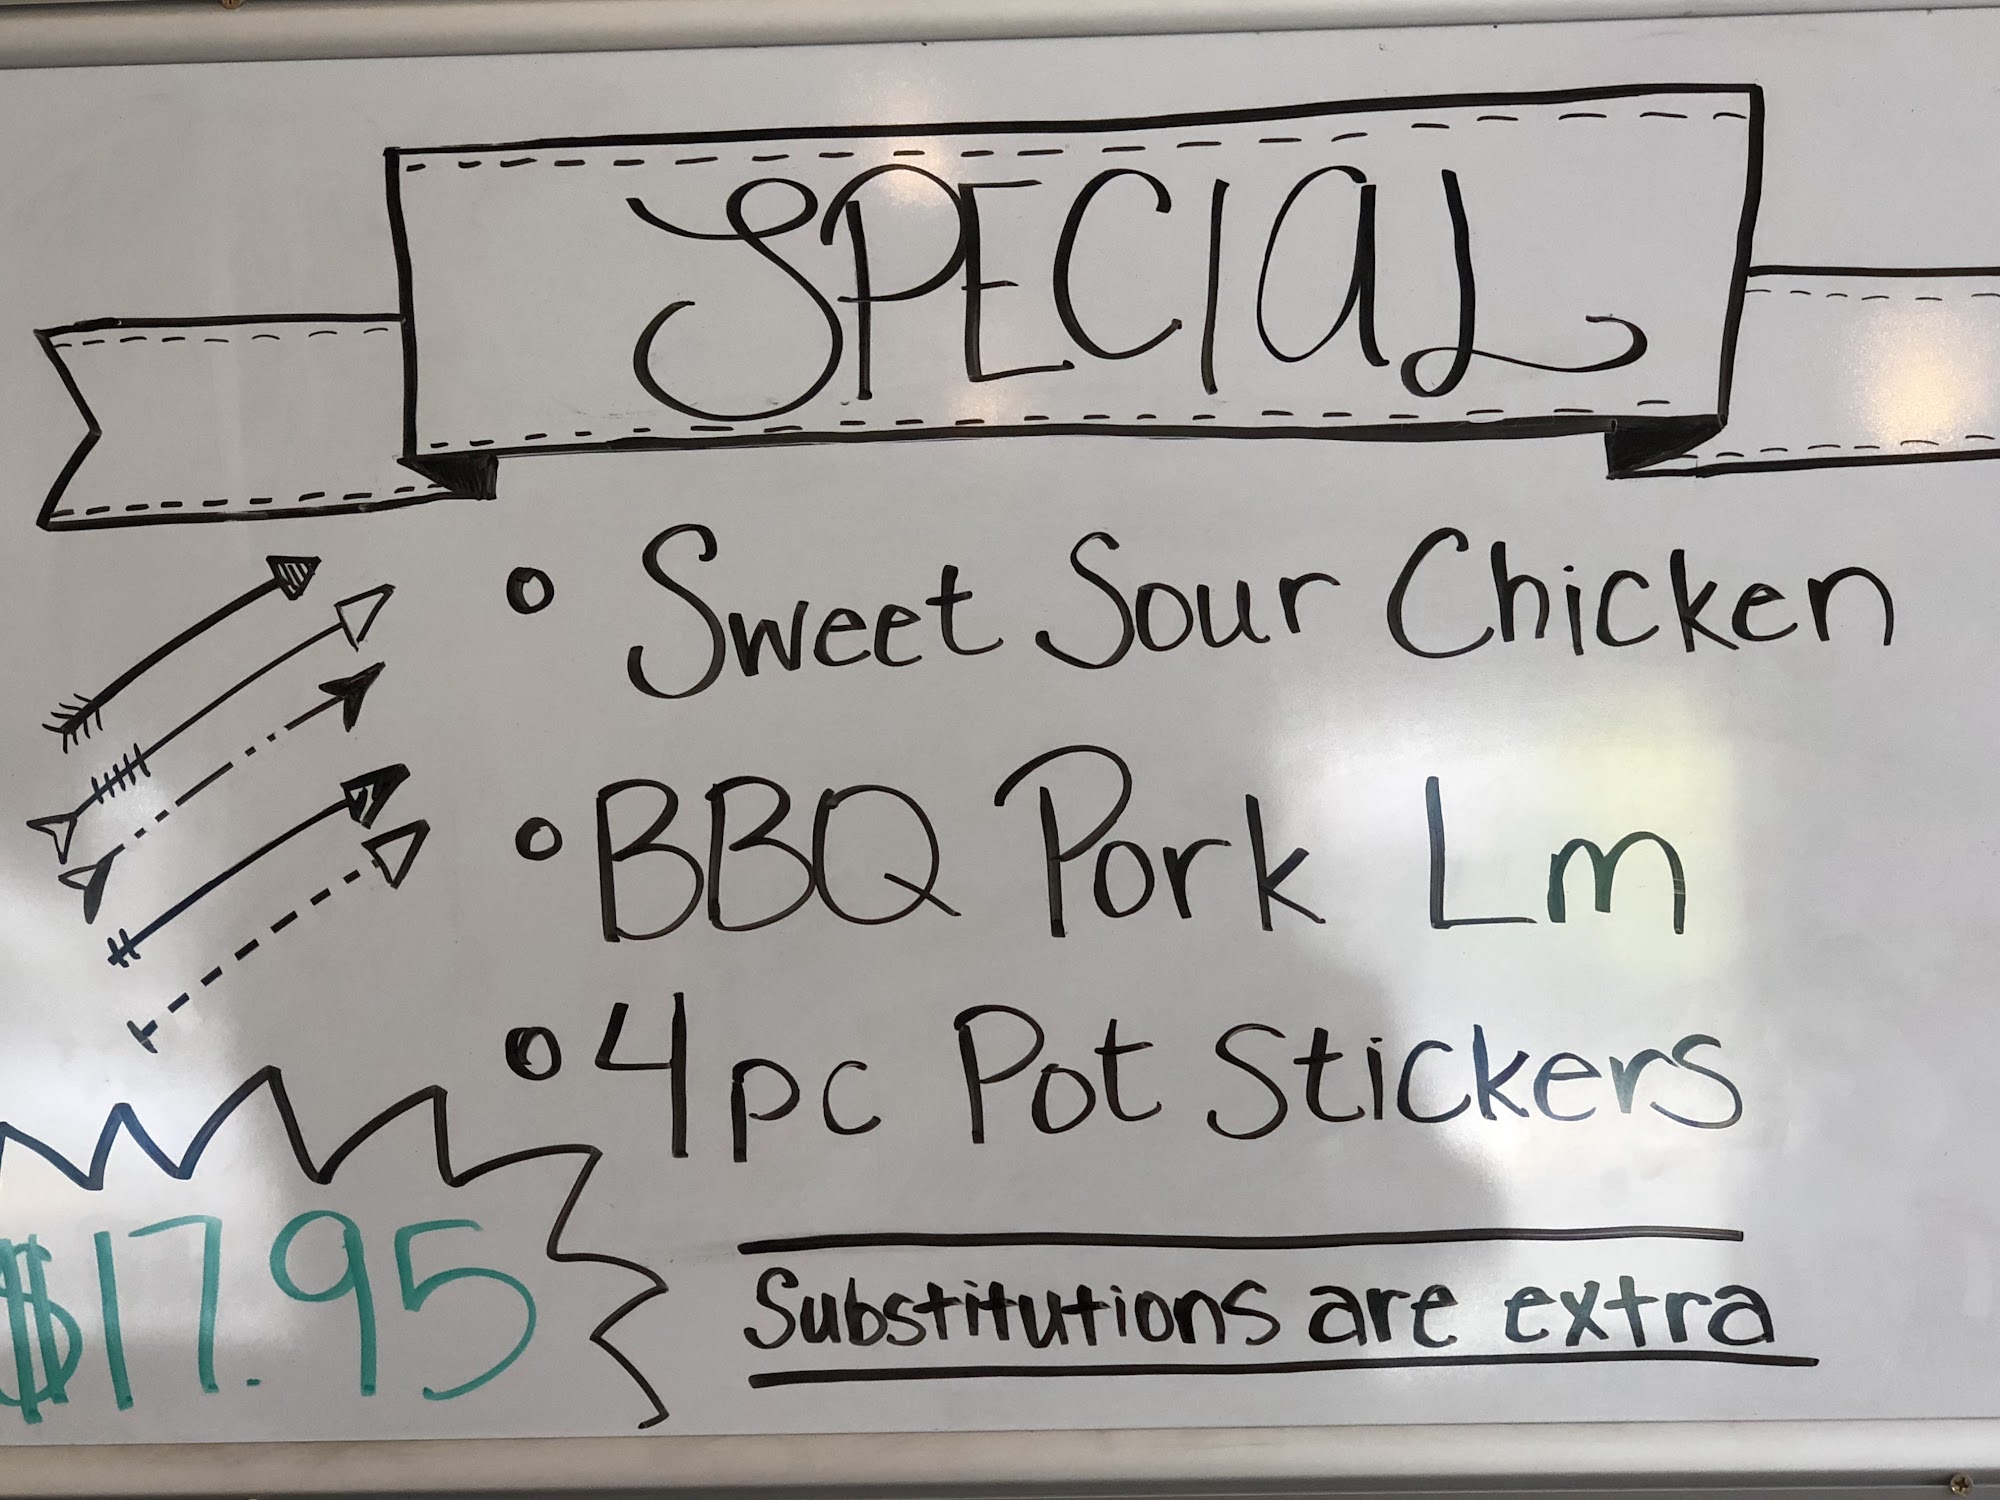 SPECIAL
Sweet Sour Chicken
BBQ Pork Lm
4pc Pot Stickers
$17.95
Substitutions are extra